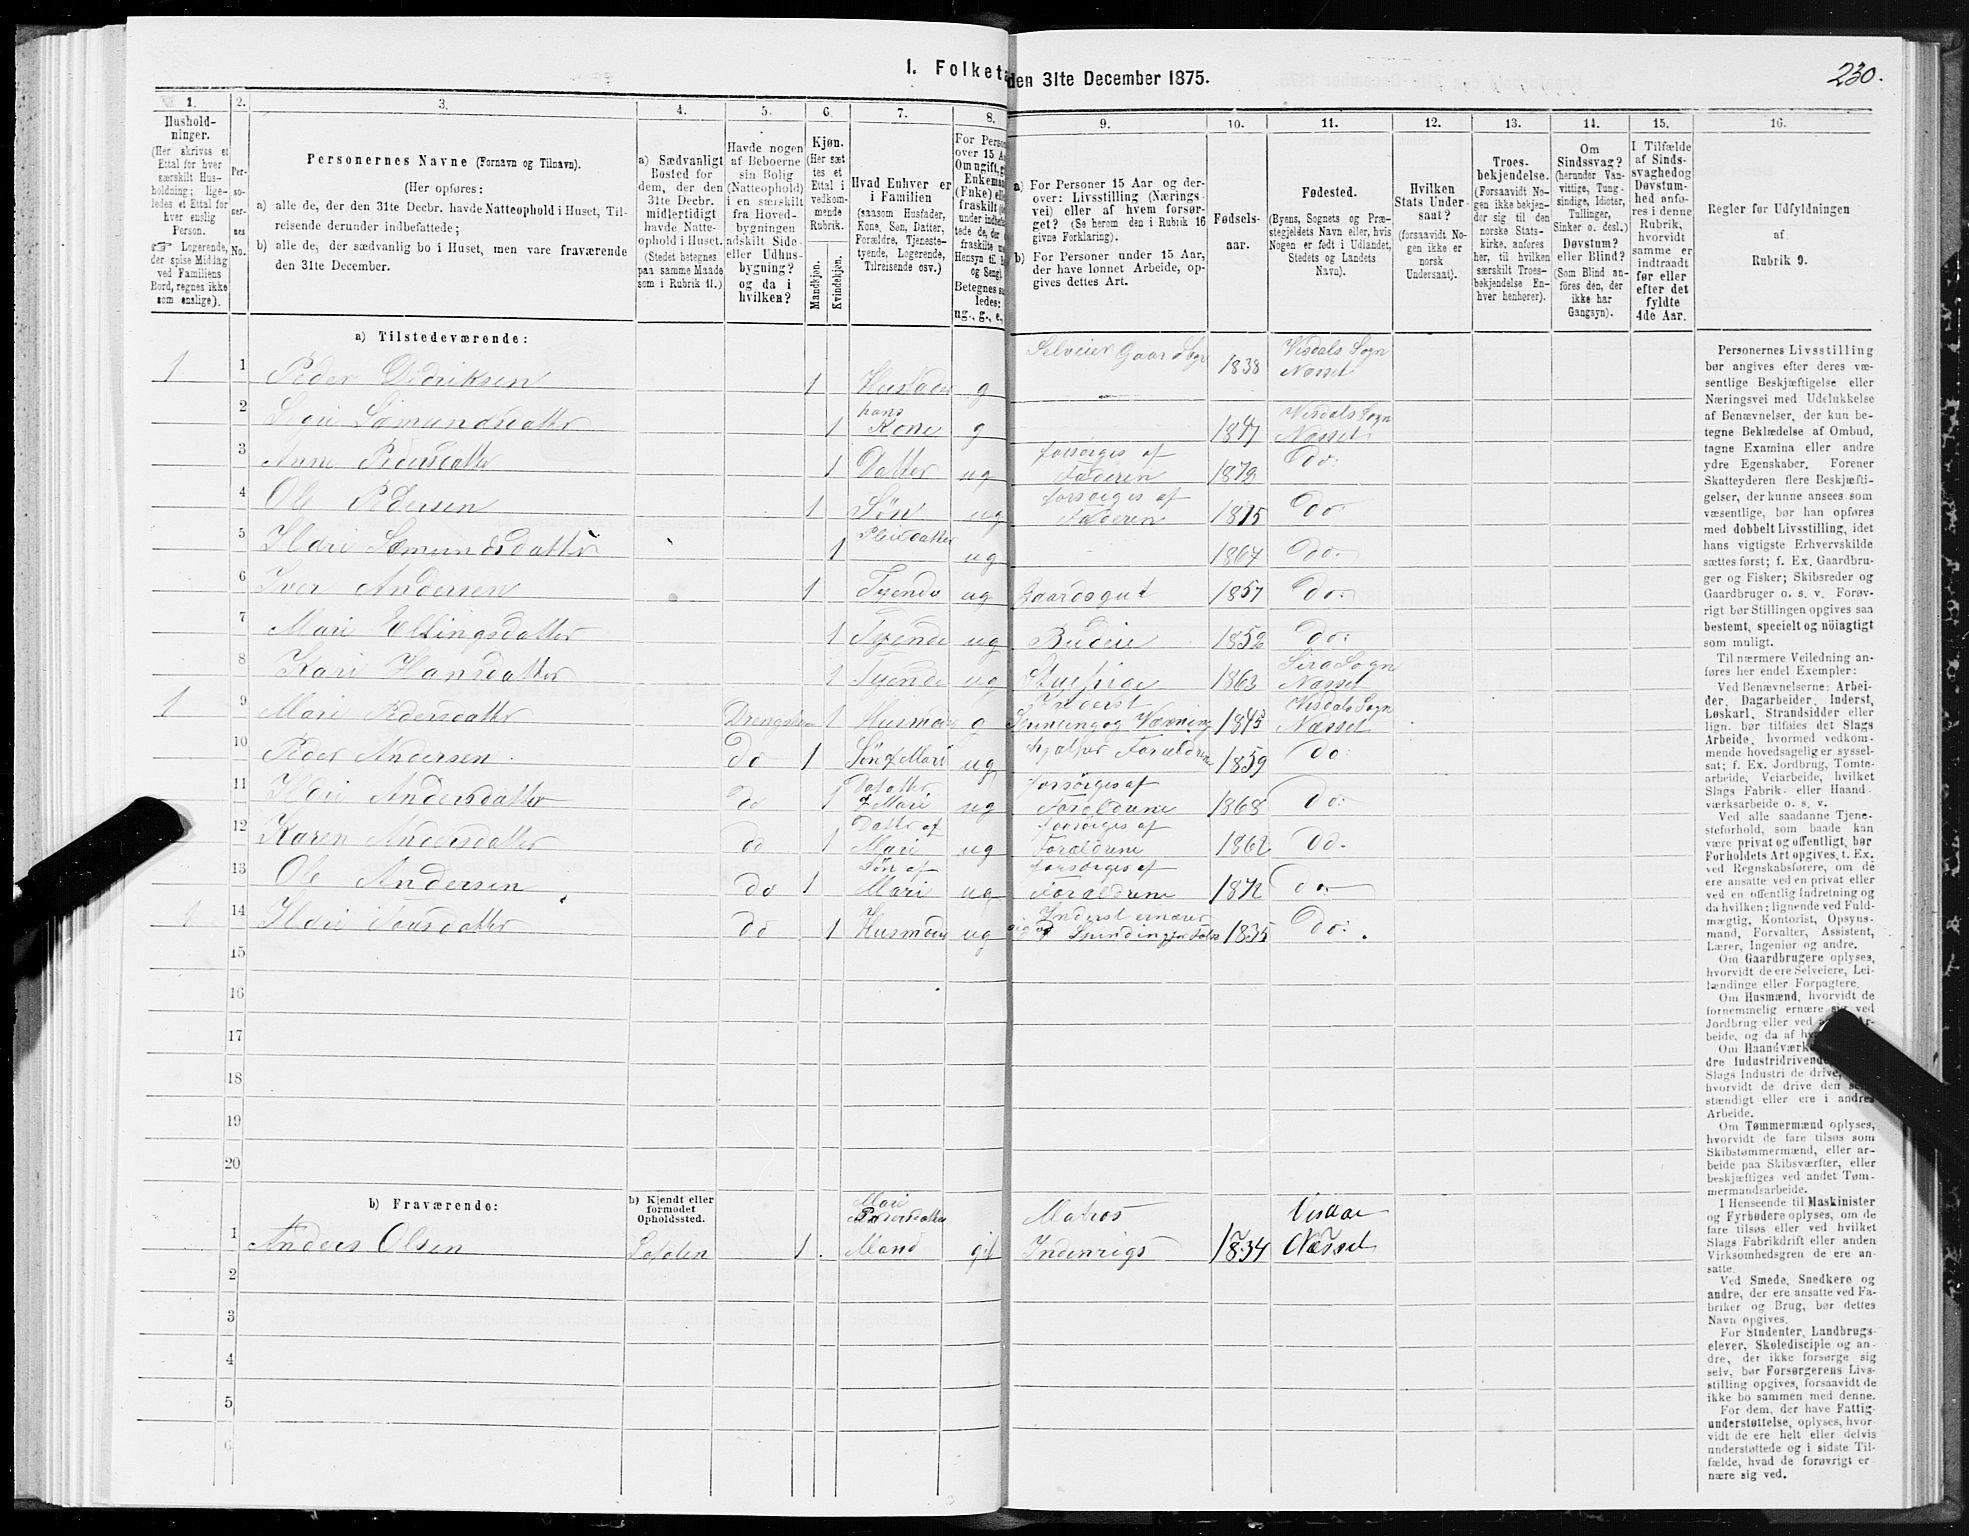 230.
1. Folketa den 31te December 1875.
1. 2. 3. 4. 5. 6. 7. 8. 9. 10. 11. 12. 13. 14. 15. 16.
Hushold-
ninger.
(Her skrives et
Ettal for hver
særskilt Hus-
holdning; lige-
ledes et Ettal for
hver enslig
Person.
☞ Logerende,
der spise Middag
ved Familiens
Bord, regnes ikke
som enslige).
Per-
so-
ner-
nes
No.
Personernes Navne (Fornavn og Tilnavn).
(Her opføres:
a) alle de, der den 31te Decbr. havde Natteophold i Huset, Til-
reisende derunder indbefattede;
b) alle de, der sædvanlig bo i Huset, men vare fraværende
den 31te December.
a) Sædvanligt
Bosted for
dem, der den
31te Decbr.
midlertidigt
havde Natte-
ophold i Huset.
(Stedet betegnes
paa samme Maade
som i Rubrik 11.)
Havde nogen
af Beboerne
sin Bolig
(Natteophold)
i en særskilt
fra Hoved-
bygningen
adskilt Side-
eller Udhus-
bygning?
og da i
hvilken?
Kjøn.
(Her sæt
tes et
Ettal i
vedkom-
mende
Rubrik.
Mandkjøn.
Kvindekjøn.
Hvad Enhver er
i Familien
(saasom Husfader,
Kone, Søn, Datter,
Forældre, Tjeneste-
tyende, Logerende,
Tilreisende osv.)
For Perso
over 15 A
Om ugift, g
Enkeman
(Enke) elle
fraskilt (o
under indbef
tede de, der e
fraskilte m
Hensyn til B
og Seng).
Betegnes saa
ledes:
ug., g., e.,
a) For Personer 15 Aar og der-
over: Livsstilling (Nærings-
vei) eller af hvem forsør-
get? (Se herom den i Rubrik 16
givne Forklaring).
b) For Personer under 15 Aar,
der have lønnet Arbeide, op-
gives dettes Art.
Fødsels-
aar.
Fødested.
(Byens, Sognets og Præ-
stegjeldets Navn eller, hvis
Nogen er født i Udlandet,
Stedets og Landets
Navn).
Hvilken
Stats Under-
saat?
(forsaavidt No-
gen ikke er
norsk
Undersaat).
Troes-
bekjendelse.
(Forsaavidt No-
gen ikke bekjen-
der sig til den
norske Stats-
kirke, anføres
her, til hvilken
særskilt Troes-
bekjendelse En-
hver henhører).
Om
Sindssvag?
(herunder Van-
vittige, Tung-
sindige, Idioter,
Tullinger,
Sinker o. desl.)
Døvstum?
eller Blind?
(Som Blind an-
føres den, der
ikke har
Gangsyn).
I Tilfælde
af Sinds-
svaghed og
Døvstum-
hed anfø-
res i denne
Rubrik,
hvorvidt
samme er
indtraadt
før eller
efter det
fyldte
4de Aar.
Regler for Udfyldningen
af
Rubrik 9.
a) Tilstedeværende:
1 1 Peder Didriksen 1 Husfader g Selveier Gaar 1838 Visdals Sogn Næsset
2 Samundsdatter 1 hans Kone g Visdals Sogn Næsset
3 Anne Pedersdatter 1 Datter ug forsørges af Faderen 1872 Do:
4 Ole Pedersen 1 Søn ug forsørges af Faderen 1875 Do
5 Ildri Sæmundsdatter 1 Pleiedatter ug 1867 Do.
6 Iver Andersen 1 Tyende ug Gaardsgut 1857 Do:
7 Mari Ellingsdatter 1 Tyende ug Budeie 1852 Do:
8 Kari Hansdatter 1 Tyende ug Stuepige 1863 Sira Sogn Næsset
1 9 Mari Pedersdatter 1 Husmoder g Inderst Spinding og Væwning Visdals Sogn Næsset
10 Peder Andersen. do 1 Søn af Mari ug hjælper Forældrene 1859 Do:
11 Ildri Andersdatter do 1 Datter af Mari ug forsørges af Forældrene 1868 Do:
12 Karen Andersdatter do 1 Datter af Mari ug forsørges af Forældrene 1862 Do.
13 Ole Andersen do 1 Søn af Mari ug forsørges af Forældrene 1872 do.
1 14 Ildri do 1 Husmoder ug Inderst ernærer sig af Spinding for Folk 1835 Do:
15
16
17
18
19
20
b) Fraværende:
b) Kjendt eller
formodet
Opholdssted.
1 Anders Olsen Lofoten 1. Mari Pedersdatter Mand gift Matros Indenrigs 1834 Visdal Næsset
2
3
4
5
6
Personernes Livsstilling
bør angives efter deres væ-
sentlige Beskjæftigelse eller
Næringsvei med Udelukkelse
af Benævnelser, der kun be-
tegne Beklædelse af Ombud,
tagne Examina eller andre
ydre Egenskaber. Forener
Skatteyderen flere Beskjæfti-
gelser, der kunne ansees som
væsentlige, bør han opføres
med dobbelt Livsstilling, idet
hans vigtigste Erhvervskilde
sættes først; f. Ex. Gaardbru-
ger og Fisker; Skibsreder og
Gaardbruger o. s. v. Forøv-
rigt bør Stillingen opgives saa
bestemt, specielt og nöiagtigt
som muligt.
Til nærmere Veiledning an-
føres her endel Exempler:
Ved Benævnelserne: Arbei-
der, Dagarbeider, Inderst,
Løskarl, Strandsidder eller
lign. bør tilføies det Slags
Arbeide, hvormed vedkom-
mende hovedsagelig er syssel-
sat; f. Ex. Jordbrug, Tomte-
arbeide, Veiarbeide, hvilket
Slags Fabrik- eller Haand-
værksarbeide o. s. v.
Ved alle saadanne Tjene-
steforhold, som baade kan
være privat og offentligt, bør
Forholdets Art opgives, t. Ex.
ved Regnskabsførere, om de
ere ansatte ved en privat eller
ved en offentlig Indretning og
da hvilken; lignende ved Fuld-
mægtig, Kontorist, Opsyns-
mand, Forvalter, Assistent,
Lærer, Ingeniør og andre.
Om Gaardbrugere oplyses,
hvorvidt de ere Selveiere, Lei-
lændinge eller Forpagtere.
Om Husmænd, hvorvidt de
fornemmelig ernære sig ved
Jordbrug eller ved Ar-
beide, og da af
Om Haandværk
dre Industridrivende
Slags Industri de drive,
hvorvidt de drive den
stændigt eller ere i andres
Arbeide.
Om Tømmermænd oplyses,
hvorvidt de fare tilsøs som
Skibstømmermænd, eller ar-
beide paa Skibsværfter, eller
beskjæftiges ved andet Tøm-
mermandsarbeide.
I Henseende til Maskinister
og Fyrbødere oplyses, om de
fare tilsøs eller ved hvilket
Slags Fabrikdrift eller anden
Virksomhedsgren de ere an-
satte.
Ved Smede, Snedkere og
andre, der ere ansatte ved Fa-
briker og Brug, bør dettes
Navn opgives.
For Studenter, Landbrugs-
elever, Skoledisciple og an-
dre, der ikke forsørge sig
selv, bør Forsørgerens Livs-
stilling opgives, forsaavidt de
ikke bo sammen med denne.
For dem, der have Fattig-
understøttelse, oplyses, hvor-
vidt de ere helt eller delvis
understøttede og i sidste Til-
fælde, hvad de forøvrigt er-
nære sig ved.